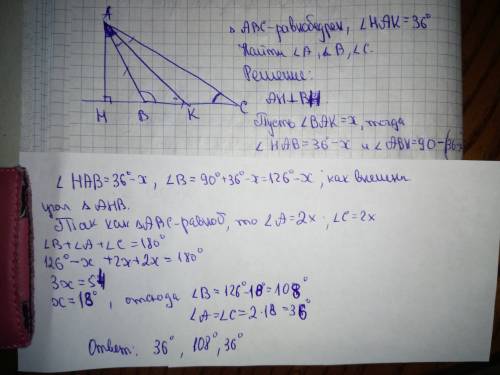 A
H
B
K
C
△ABC-равнобедрен, ∠HAK=36°
Найти ∠A, ∠B, ∠C.
Решение:
AH⊥BH
Пусть ∠BAK=x, тогда
∠HAB=36°-x и ∠ABH=90-(36-x
∠HAB=36°-x, ∠B=90°+36°-x=126°-x, как внешн
угол △AHB.
Так как △ABC-равноб, то ∠A=2x, ∠C=2x
∠B+∠A+∠C=180°
126°-x+2x+2x=180°
3x=54
x=18°, отсюда ∠B=126°-18°=108°
∠A=∠C=2·18=36°
Ответ: 36°, 108°, 36°